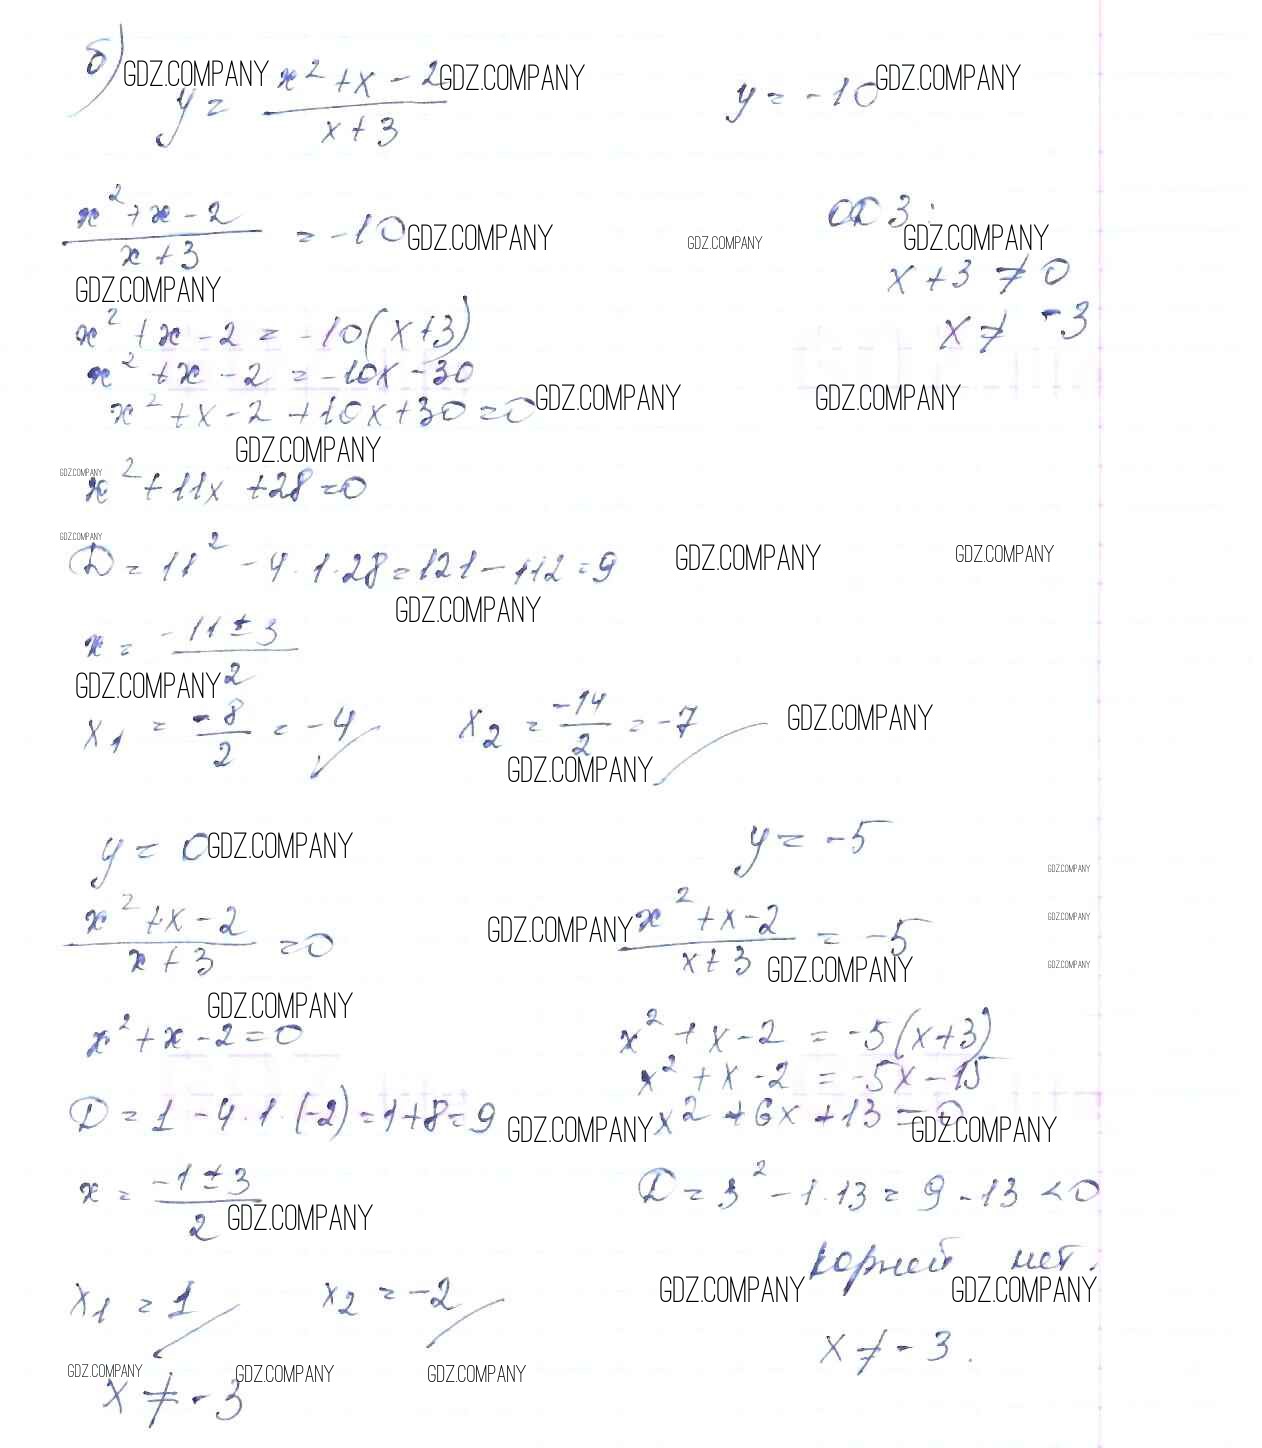 б) GDZ.COMPANY y = (x² + x - 2)/(x + 3) GDZ.COMPANY y = -10 GDZ.COMPANY
(x² + x - 2)/(x + 3) = -10 GDZ.COMPANY GDZ.COMPANY ОДЗ: GDZ.COMPANY
GDZ.COMPANY x + 3 ≠ 0
x² + x - 2 = -10(x+3) x ≠ -3
x² + x - 2 = -10x - 30
x² + x - 2 + 10x + 30 = 0 GDZ.COMPANY GDZ.COMPANY
GDZ.COMPANY
GDZ.COMPANY
x² + 11x + 28 = 0
GDZ.COMPANY
D = 11² - 4 · 1 · 28 = 121 - 112 = 9 GDZ.COMPANY GDZ.COMPANY
GDZ.COMPANY
x = (-11 ± 3)/2
GDZ.COMPANY
x₁ = -8/2 = -4 x₂ = -14/2 = -7 GDZ.COMPANY
GDZ.COMPANY
y = 0 GDZ.COMPANY y = -5
GDZ.COMPANY
(x² + x - 2)/(x + 3) = 0 GDZ.COMPANY (x² + x - 2)/(x + 3) = -5 GDZ.COMPANY
GDZ.COMPANY GDZ.COMPANY
GDZ.COMPANY
x² + x - 2 = 0 x² + x - 2 = -5(x+3)
x² + x - 2 = -5x - 15
D = 1 - 4 · 1 · (-2) = 1 + 8 = 9 GDZ.COMPANY x² + 6x + 13 = 0 GDZ.COMPANY
x = (-1 ± 3)/2 GDZ.COMPANY D = 3² - 1 · 13 = 9 - 13 < 0
корней нет.
GDZ.COMPANY GDZ.COMPANY
x₁ = 1 x₂ = -2
x ≠ -3.
GDZ.COMPANY GDZ.COMPANY GDZ.COMPANY
x ≠ -3